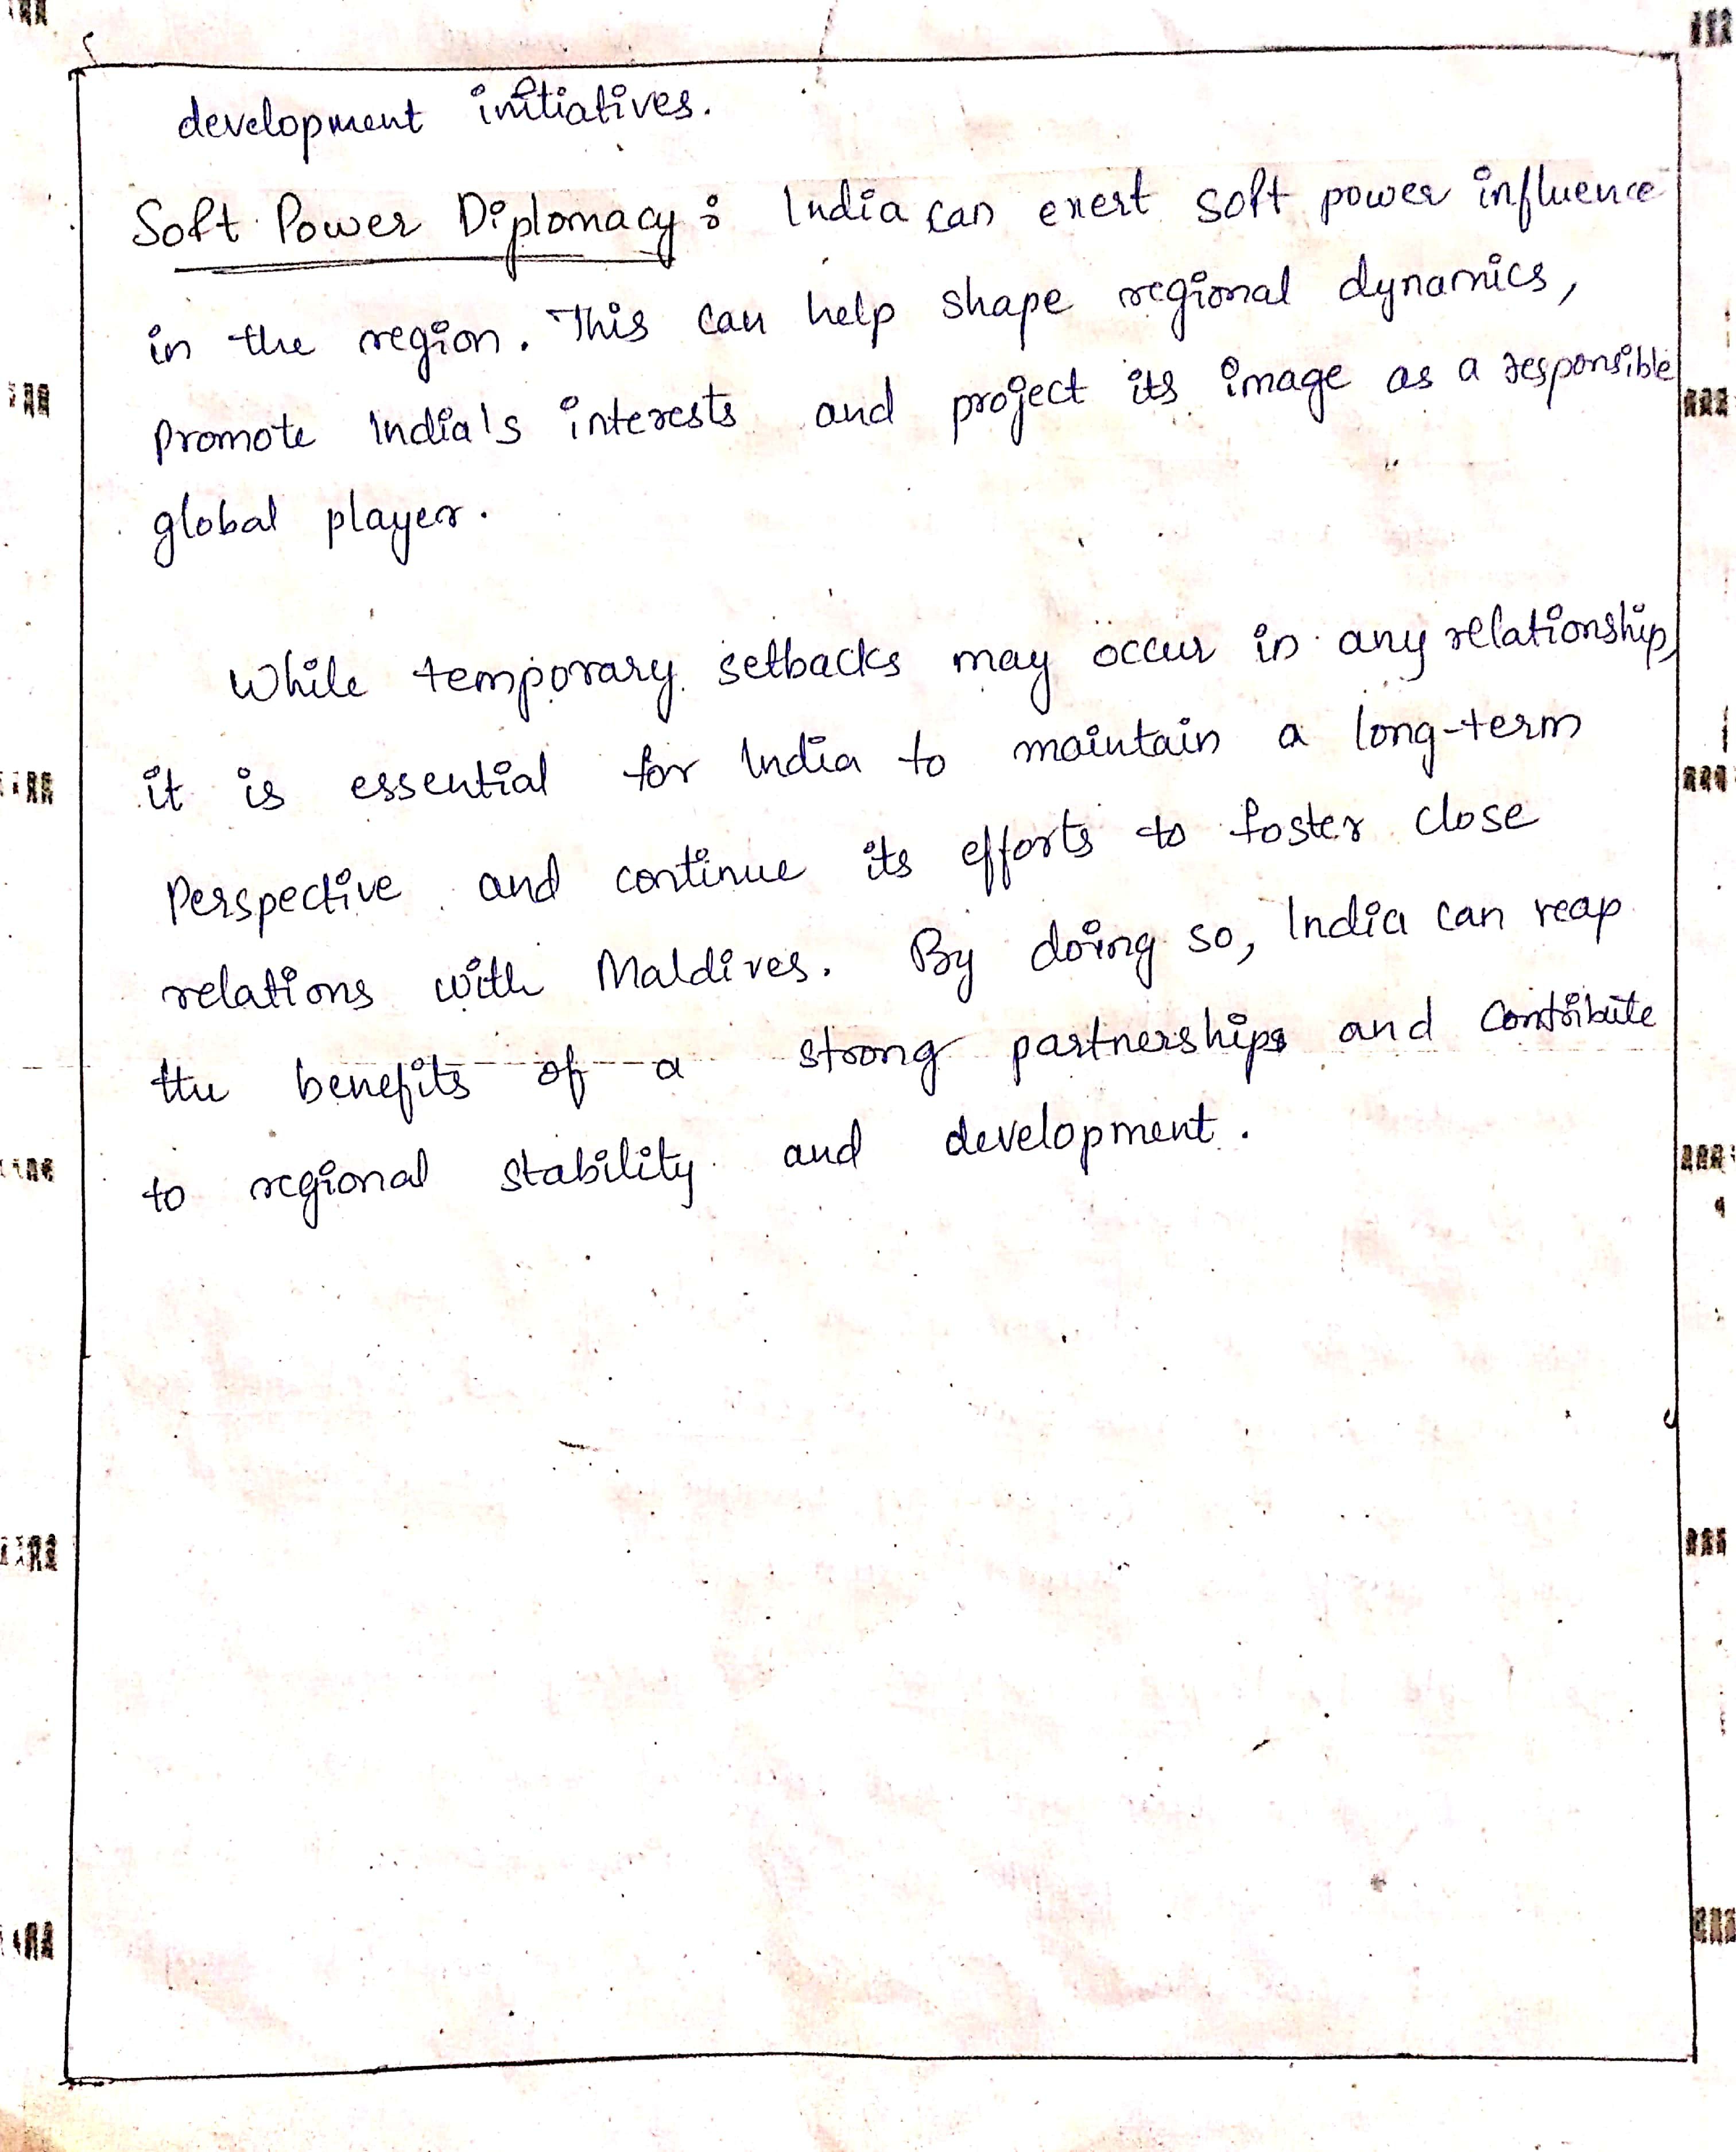 development initiatives.
Soft Power Diplomacy : India can exert soft power influence
in the region. This can help shape regional dynamics,
Promote India's interests and project its image as a responsible
global player.
While temporary setbacks may occur in any relationship,
it is essential for India to maintain a long-term
Perspective and continue its efforts to foster close
relations with Maldives. By doing so, India can reap
the benefits of a strong partnerships and contribute
to regional stability and development.